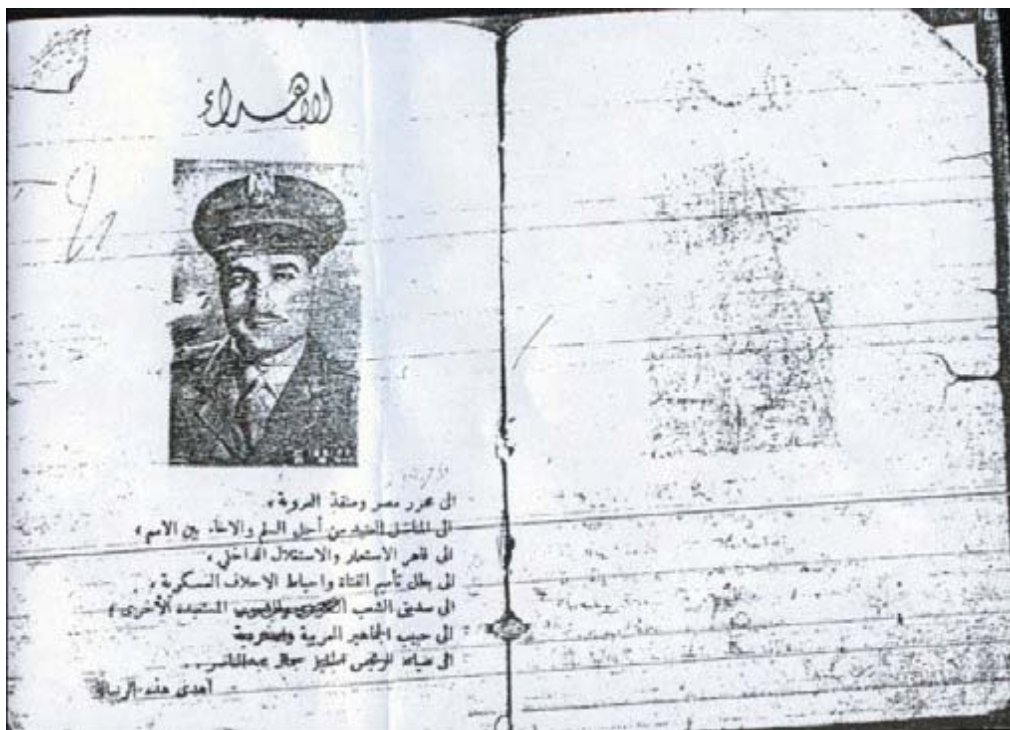 الاهداء
الى محرر مصر ومنقذ العروبة ،
الى المناضل العنيد من أجل السلم والاخاء بين الامم ،
الى قاهر الاستعمار والاستغلال الداخلي ،
الى بطل تأميم القناة واحباط الاحلاف العسكرية ،
الى صديق الشعب الكردي والشعوب المستعبده الأخرى ،
الى حبيب الجماهير العربية
الى سيادة الرئيس جمال عبدالناصر ..
أهدى هذه الرسالة